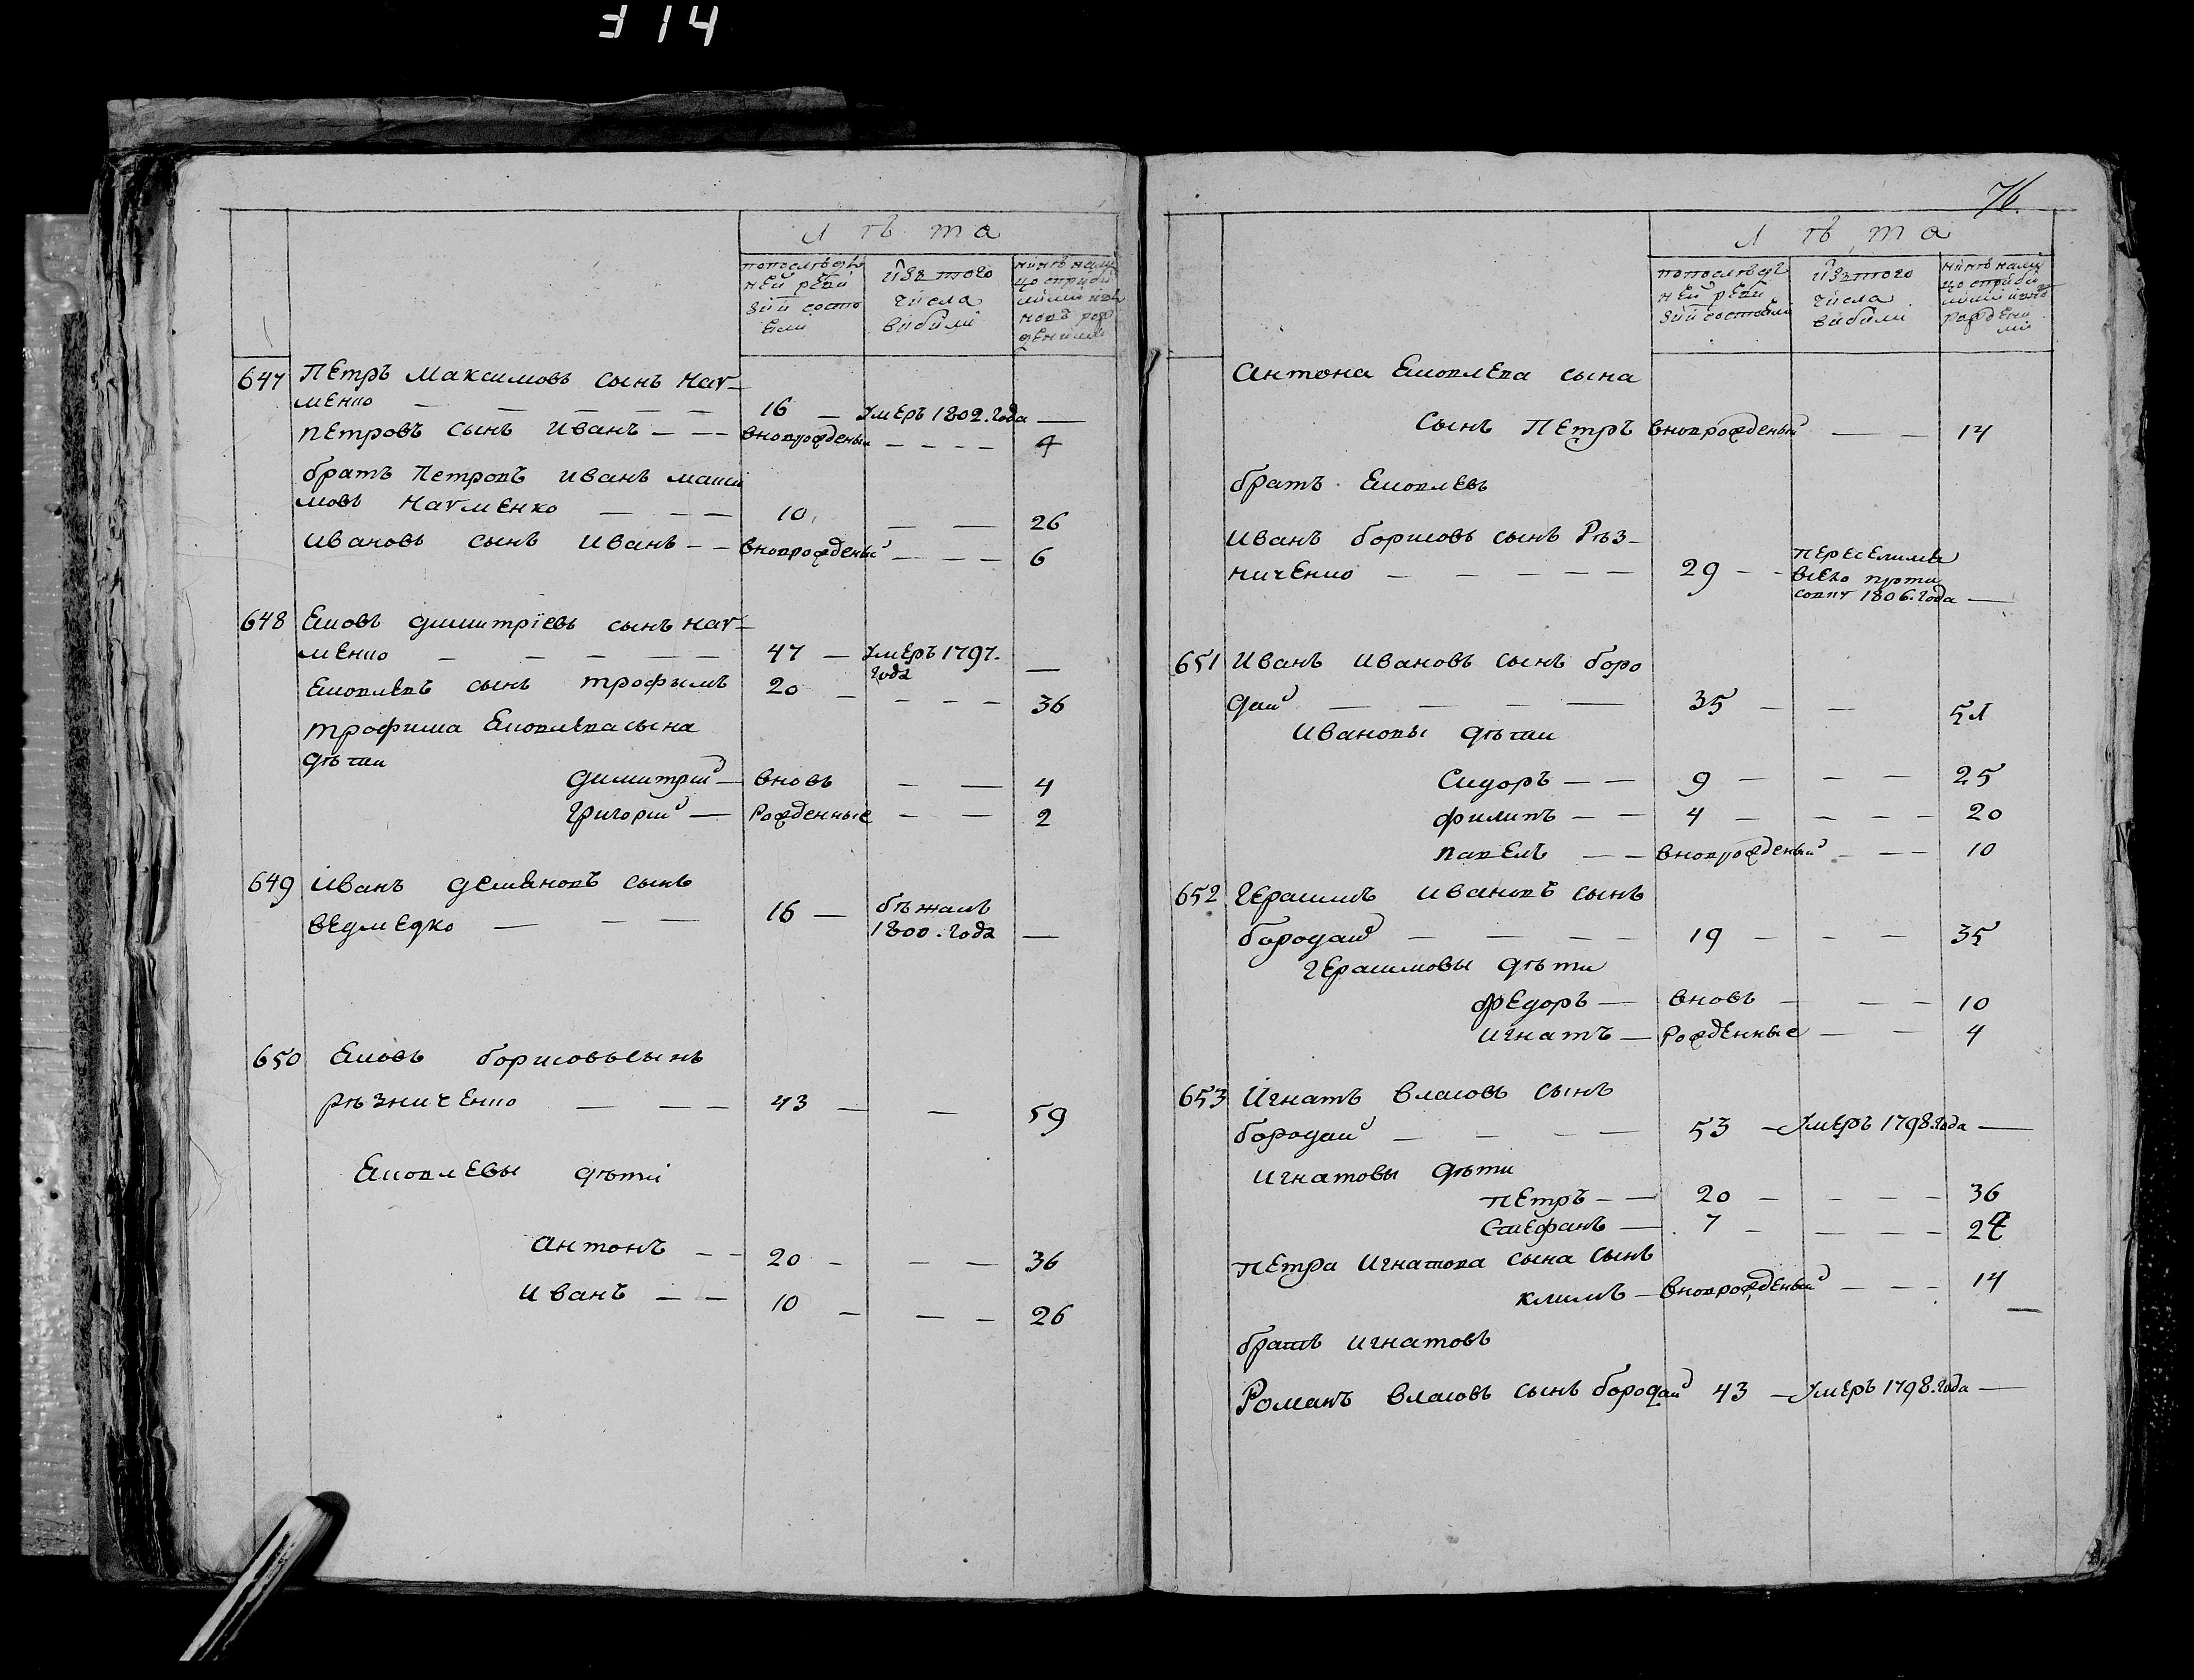 Лѣта
попослѣд
ней реви
зіи состо
яли
изъ того
числа
вибили
647 Петръ Максимовъ сынъ Нау-
менко — — — — — 16 — умеръ 1802. года —
Петровъ сынъ Иванъ — — вновьрожденый — — — — 4
братъ Петровъ Иванъ макси
мовъ Науменко — — — 10 — — 26
Ивановъ сынъ Иванъ — — вновьрожденый — — — 6
648 Яковъ димитріевъ сынъ Нау-
менко — — — — — 47 — умеръ 1797.
года —
Яковлевъ сынъ трофымъ 20 — — — — 36
трофима Яковлева сына
дѣти
димитрий — вновь — — 4
Григорий — рожденные — — 2
649 Иванъ демяновъ сынъ
ведмедко — — — 16 — бѣжалъ
1800. года —
650 Яковъ борисовъ сынъ
рѣзниченко — — — 43 — — 59
Яковлевы дѣти
антонъ — — 20 — — — 36
Иванъ — — 10 — — — 26
76.
Лѣта
попослѣд
ней реви
зіи состояли
изъ того
числа
вибили
антона Яковлева сына
сынъ Петръ вновьрожденый — — 14
братъ Яковлевъ
Иванъ борисовъ сынъ Рѣз-
ниченко — — — — — 29 — — переселился
1806. года —
651 Иванъ Ивановъ сынъ боро
дай — — — — 35 — — 51
Ивановы дѣти
Сидоръ — — 9 — — — 25
филипъ — — 4 — — — — 20
павелъ — — вновьрожденый — — — 10
652 Герасимъ Ивановъ сынъ
бородай — — — — 19 — — — 35
Герасимовы дѣти
федоръ — вновь — — — 10
Игнатъ — рожденные — — 4
653 Игнатъ власовъ сынъ
бородай — — — — 53 — умеръ 1798. года —
Игнатовы дѣти
петръ — — 20 — — — — 36
Стефанъ — 7 — — — — 24
петра Игнатова сына сынъ
климъ — вновьрожденый — — — 14
братъ Игнатовъ
Романъ власовъ сынъ бородай 43 — умеръ 1798. года —